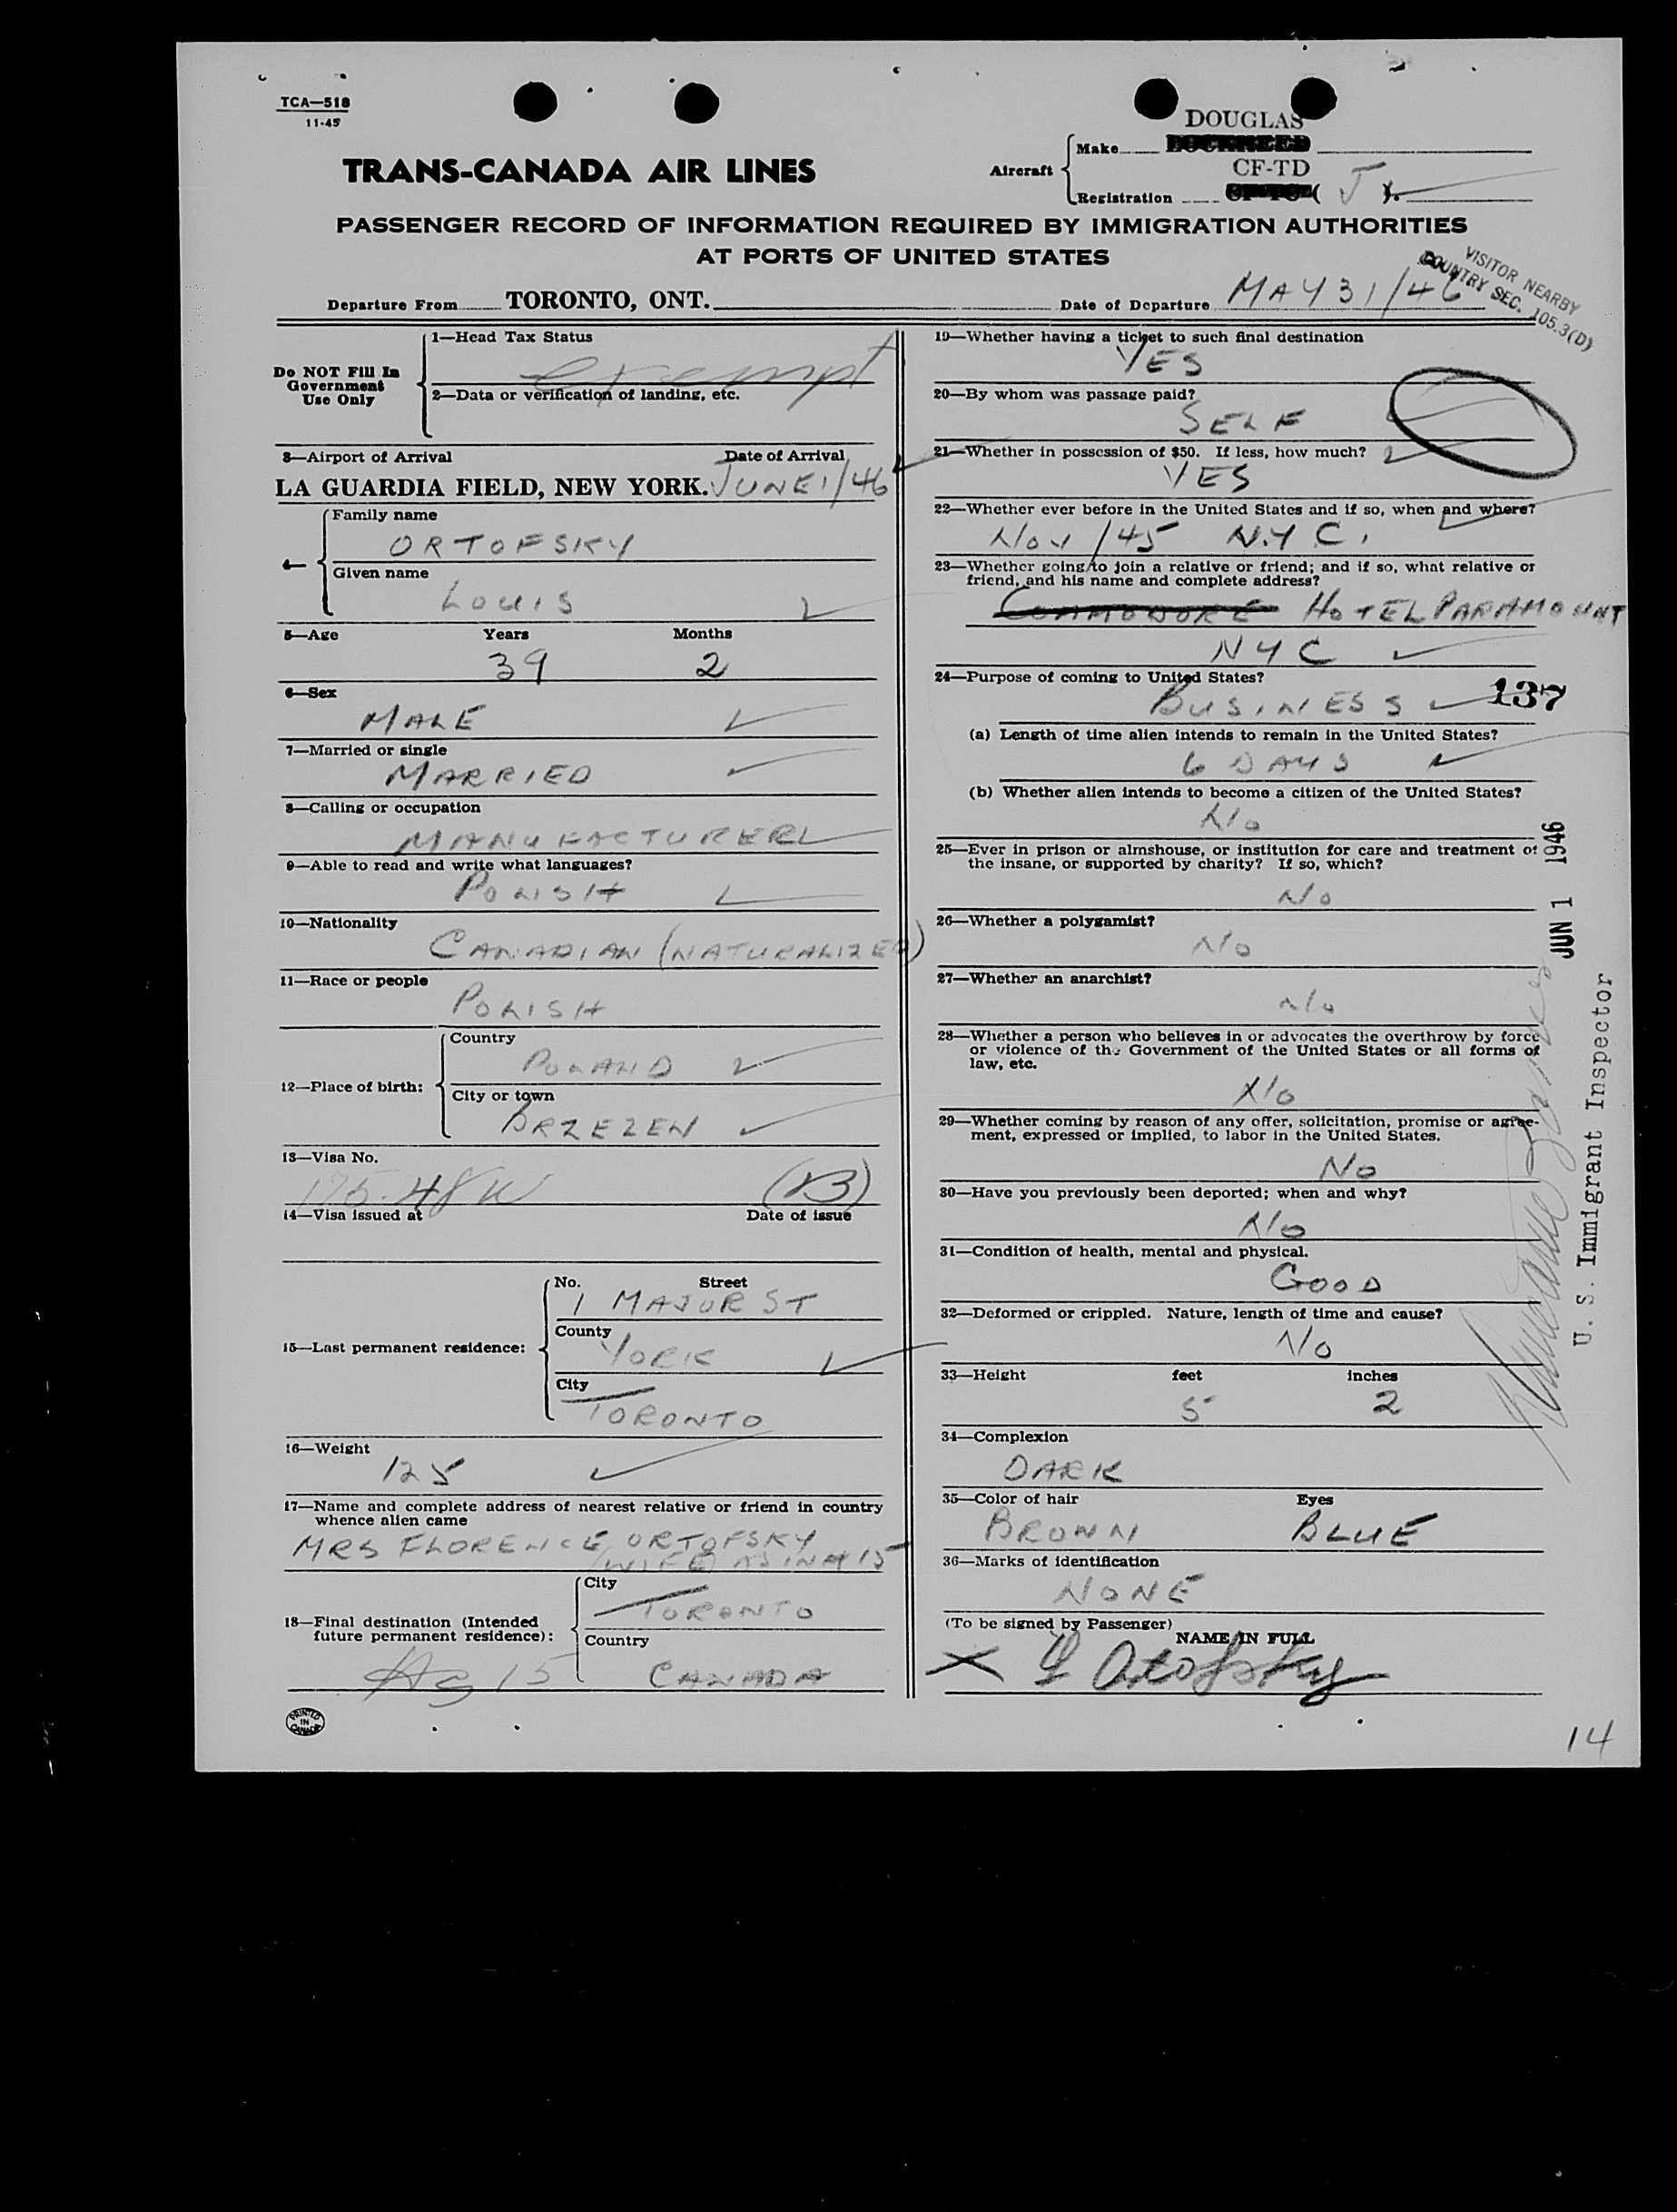 TCA—518
11-45
TRANS-CANADA AIR LINES
Aircraft
Make
DOUGLAS
Registration
CF-TD
( J ).
PASSENGER RECORD OF INFORMATION REQUIRED BY IMMIGRATION AUTHORITIES
AT PORTS OF UNITED STATES
VISITOR NEARBY
COUNTRY SEC. 105.3(D)
Departure From TORONTO, ONT. Date of Departure MAY 31/46
Do NOT Fill In
Government
Use Only
1—Head Tax Status
exempt
2—Data or verification of landing, etc.
3—Airport of Arrival Date of Arrival
LA GUARDIA FIELD, NEW YORK. JUNE 1/46
4—
Family name
ORTOFSKY
Given name
LOUIS
5—Age Years Months
39 2
6—Sex
MALE
7—Married or single
MARRIED
8—Calling or occupation
MANUFACTURER
9—Able to read and write what languages?
POLISH
10—Nationality
CANADIAN (NATURALIZED)
11—Race or people
POLISH
12—Place of birth:
Country
POLAND
City or town
BRZEZEN
13—Visa No.
175.48W (B)
14—Visa issued at Date of issue
15—Last permanent residence:
No. Street
1 MAJOR ST
County
YORK
City
TORONTO
16—Weight
125
17—Name and complete address of nearest relative or friend in country
whence alien came
MRS FLORENCE ORTOFSKY
(WIFE) AS IN # 15
18—Final destination (Intended
future permanent residence):
City
TORONTO
Country
As 15 CANADA
PRINTED
IN
CANADA
19—Whether having a ticket to such final destination
YES
20—By whom was passage paid?
SELF
21—Whether in possession of $50. If less, how much?
YES
22—Whether ever before in the United States and if so, when and where?
NOV /45 N.Y C.
23—Whether going to join a relative or friend; and if so, what relative or
friend, and his name and complete address?
COMMODORE HOTEL PARAMOUNT
NYC
24—Purpose of coming to United States?
BUSINESS 137
(a) Length of time alien intends to remain in the United States?
6 DAYS
(b) Whether alien intends to become a citizen of the United States?
No
25—Ever in prison or almshouse, or institution for care and treatment of
the insane, or supported by charity? If so, which?
No
26—Whether a polygamist?
No
27—Whether an anarchist?
No
28—Whether a person who believes in or advocates the overthrow by force
or violence of the Government of the United States or all forms of
law, etc.
No
29—Whether coming by reason of any offer, solicitation, promise or agree-
ment, expressed or implied, to labor in the United States.
No
30—Have you previously been deported; when and why?
No
31—Condition of health, mental and physical.
GOOD
32—Deformed or crippled. Nature, length of time and cause?
No
33—Height feet inches
5 2
34—Complexion
DARK
35—Color of hair Eyes
BROWN BLUE
36—Marks of identification
NONE
(To be signed by Passenger)
NAME IN FULL
X L Ortofsky
JUN 1 1946
U. S. Immigrant Inspector
14